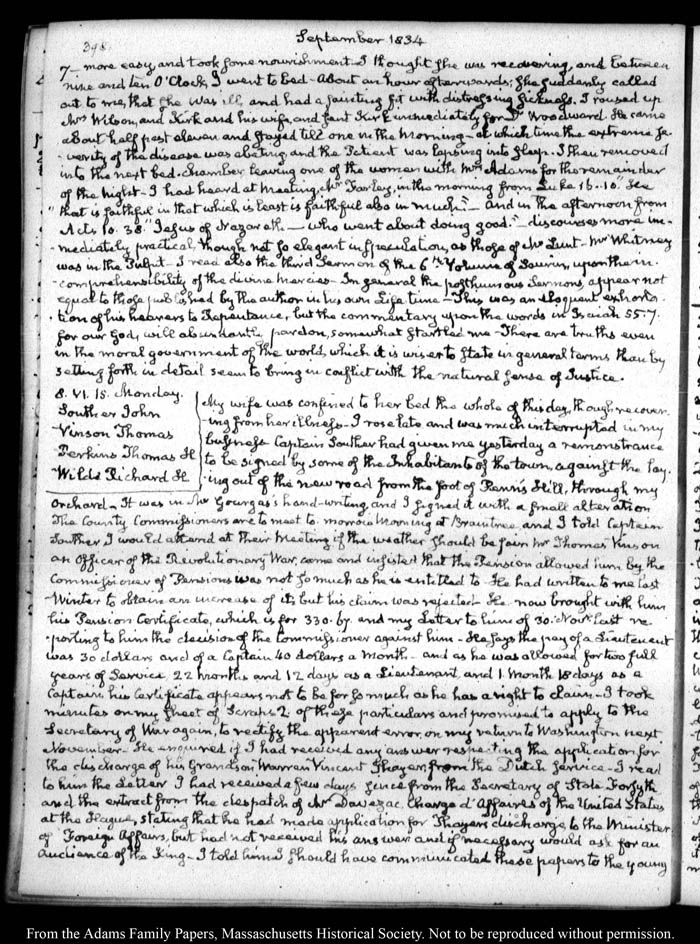 398.
September 1834
7— more easy and took some nourishment. I thought she was recovering, and between
nine and ten O'Clock, I went to bed— About an hour afterwards, she suddenly called
out to me, that she was ill, and had a fainting fit with distressing sickness. I roused up
Mrs Wilson, and Kirk and his wife, and sent Kirk immediately for Dr Woodward. He came
about half past eleven and stayed till one in the morning— at which time the extreme se-
-verity of the disease was abating, and the Patient was lapsing into sleep. I then removed
into the next bed-chamber leaving one of the women with Mrs Adams for the remainder
of the night— I had heard at Meeting, Mr Farley, in the morning from Luke 16. 10. "He
"that is faithful in that which is least is faithful also in much"— And in the afternoon from
Acts 10. 38. "Jesus of Nazareth— who went about doing good."— discourses more im-
-mediately practical, though not so elegant in speculation, as those of Mr Lunt— Mr Whitney
was in the Pulpit— I read also the third Sermon of the 6th Volume of Saurin, upon the in-
-comprehensibility of the divine mercies— In general the posthumous Sermons, appear not
equal to those published by the author in his own Life time— This was an eloquent exhorta-
-tion of his hearers to Repentance, but the commentary upon the words in Isaiah 55. 7.
for our God, will abundantly pardon, somewhat startled me— There are truths even
in the moral government of the world, which it is wiser to state in general terms than by
setting forth in detail seem to bring in conflict with the natural sense of Justice.
8. VI. 15. Monday.
Souther John
Vinson Thomas
Perkins Thomas H
Wilde Richard H
My wife was confined to her bed the whole of this day, though recover-
-ing from her illness— I rose late and was much interrupted in my
business— Captain Souther had given me yesterday a remonstrance
to be signed by some of the Inhabitants of the town, against the lay-
-ing out of the new road from the foot of Penn's Hill, through my
Orchard— It was in Mr Gourgas's hand-writing, and I signed it with a small alteration
The County Commissioners are to meet to-morrow Morning at Braintree and I told Captain
Souther I would attend at their Meeting if the weather should be fair. Mr Thomas Vinson
an Officer of the Revolutionary War, came and insisted that the Pension allowed him by the
Commissioner of Pensions was not so much as he is entitled to— He had written to me last
Winter to obtain an increase of it, but his claim was rejected— He now brought with him
his Pension Certificate, which is for 330. and my Letter to him of 30. Novr last re-
-porting to him the decision of the Commissioner against him— He says the pay of a Lieutenant
was 30 dollars and of a Captain 40 dollars a Month— and as he was allowed for two full
years of service 22 months and 12 days as a Lieutenant, and 1 Month 18 days as a
Captain, his Certificate appears not to be for so much as he has a right to claim— I took
minutes on my sheet of Scraps 2 of these particulars and promised to apply to the
Secretary of War again, to rectify the apparent error, on my return to Washington next
November— He enquired if I had received any answer respecting the application for
the discharge of his Grandson Warren Vincent Thayer, from the Dutch service— I read
to him the Letter I had received a few days since from the Secretary of State Forsyth
and the extract from the despatch of Mr Davezac, Charge d'Affaires of the United States
at the Hague, stating that he had made application for Thayer's discharge to the Minister
of Foreign Affairs, but had not received his answer and if necessary would ask for an
Audience of the King— I told him I should have communicated these papers to the young
From the Adams Family Papers, Massachusetts Historical Society. Not to be reproduced without permission.